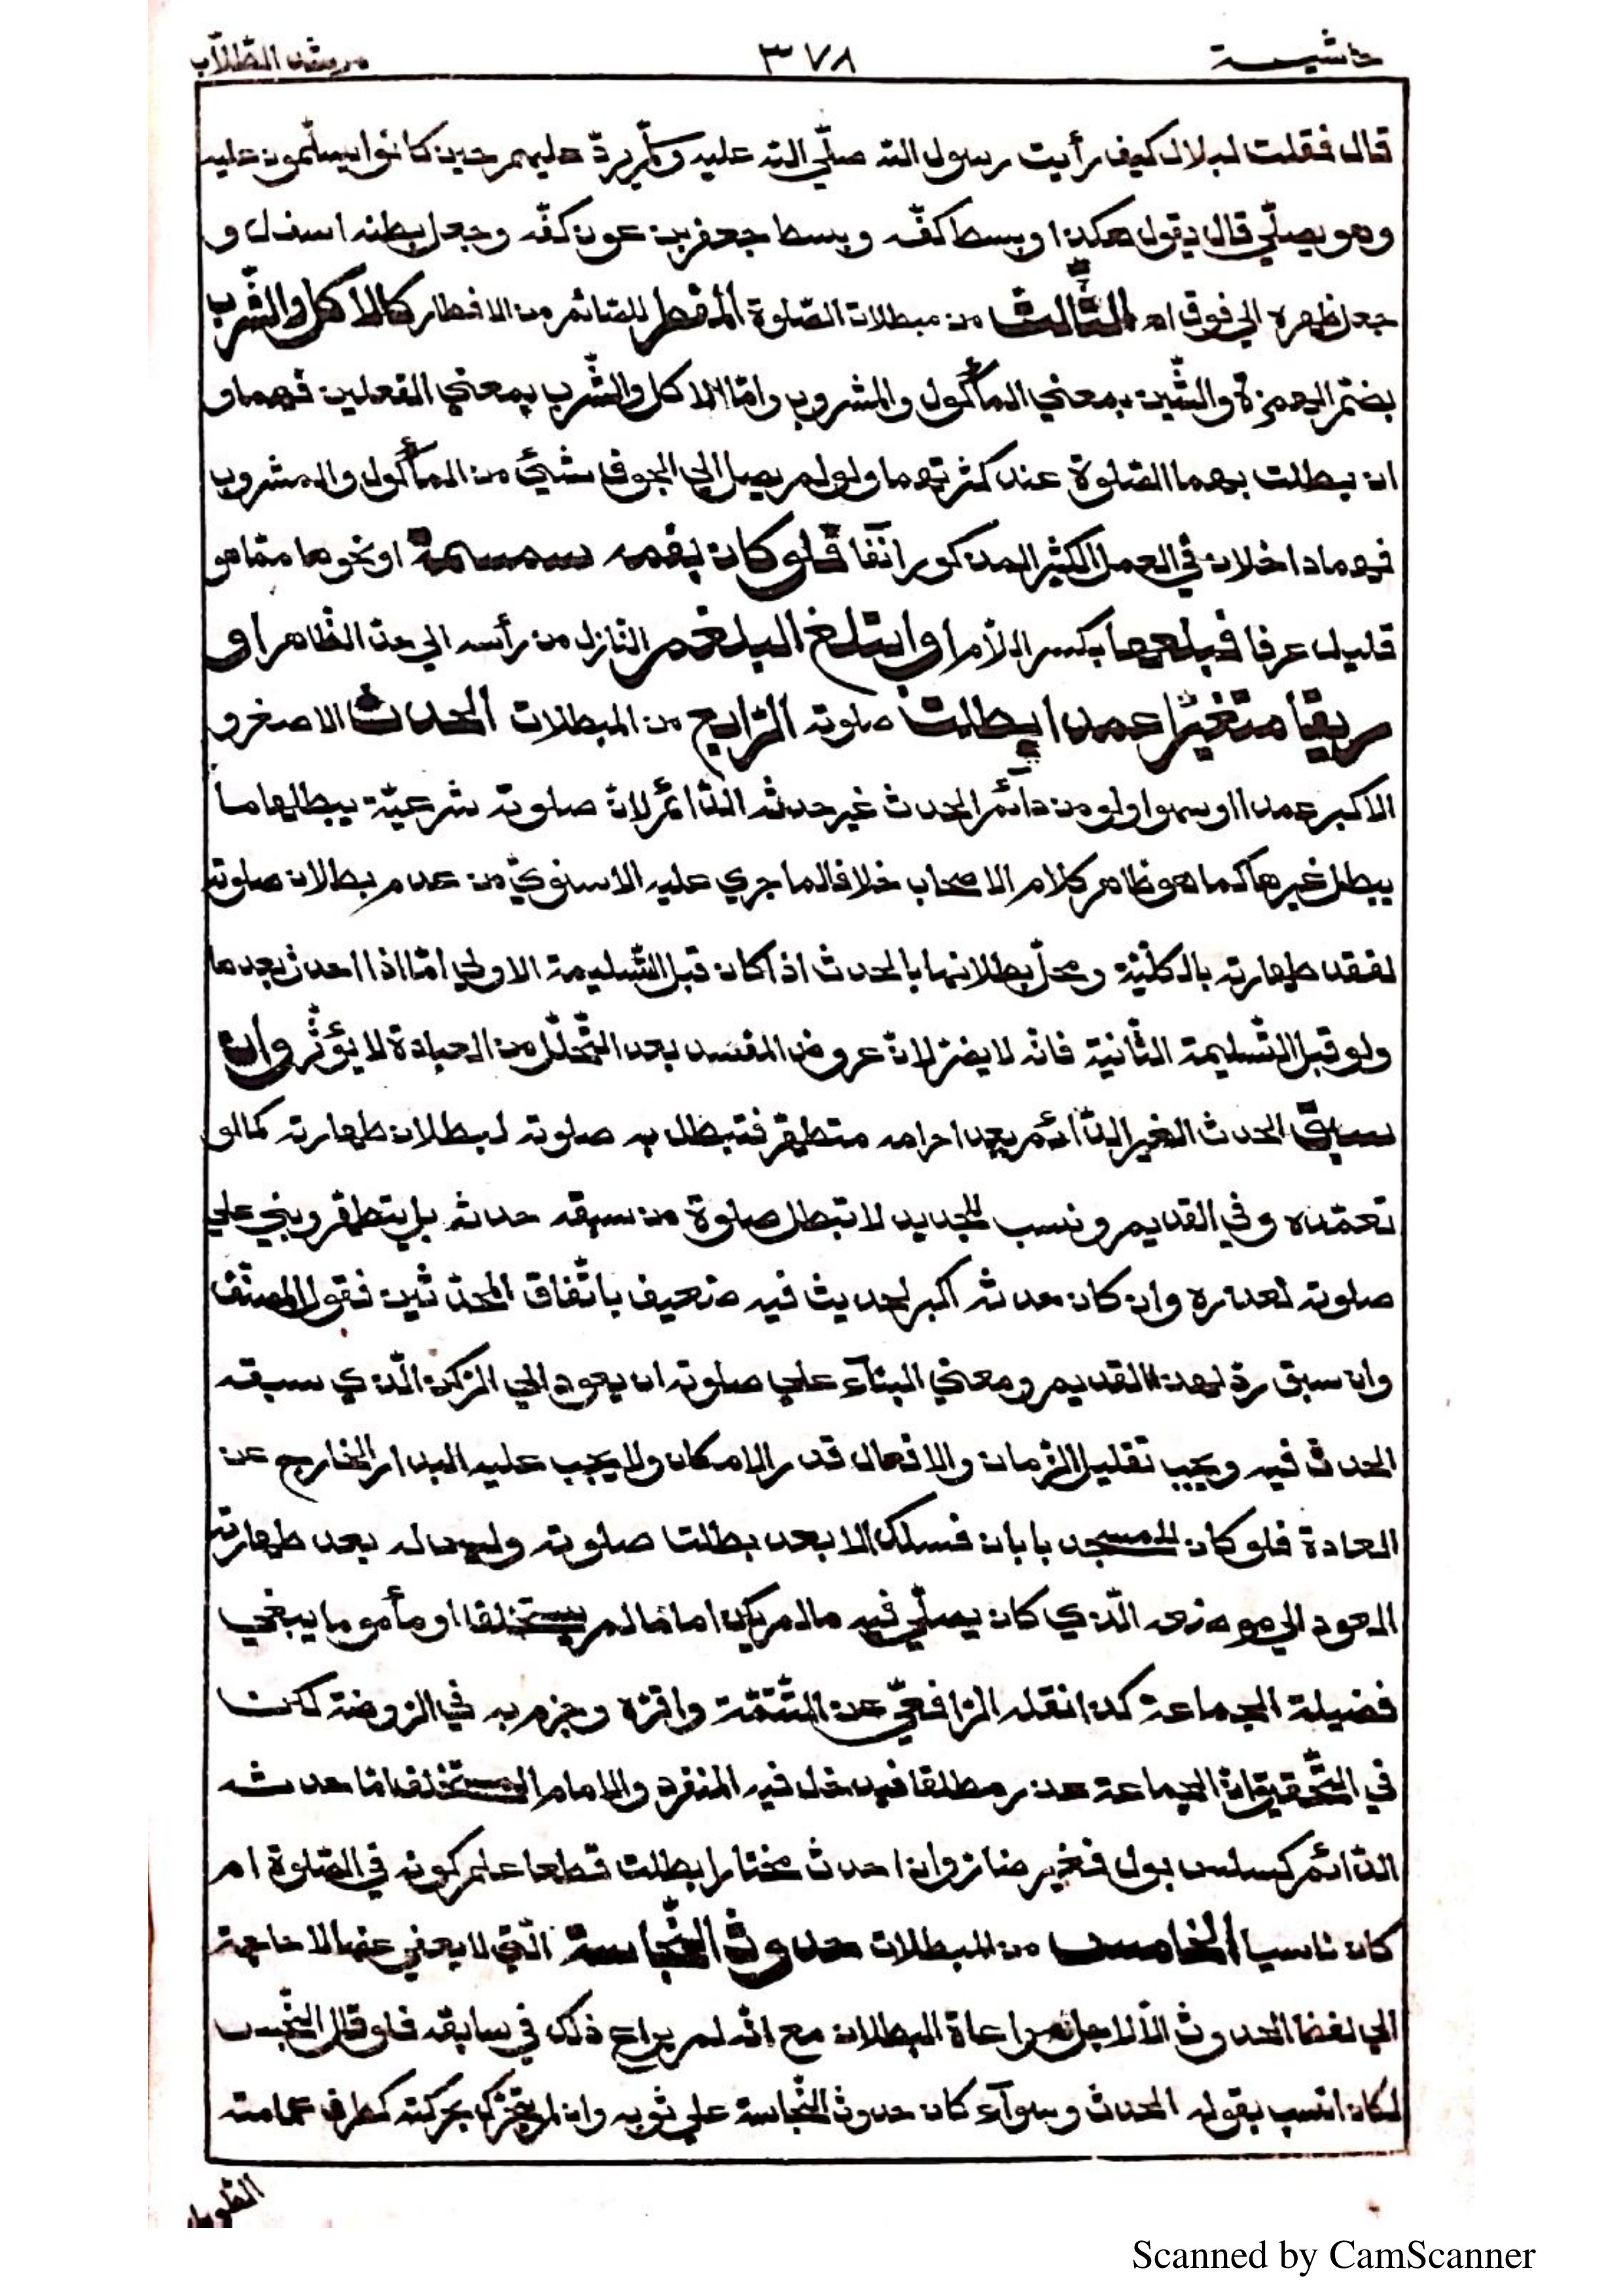 حاشيـــــة
٣٧٨
مرشد الطّلّاب
قال فقلت لبلال كيف رأيت رسول الله صلّي الله عليه وسلّم يردّ عليهم حين كانوا يسلّمون عليه
وهو يصلّي قال يقول هكذا وبسط كفّه وبسط جعفر بن عون كفّه وجعل بطنه اسفل و
جعل ظهره الي فوق اهـ الثّالث من مبطلات الصّلوة المفطر للصّائم من الافطار كالاكل والشّرب
بضمّ الهمزة والشّين بمعني المأكول والمشروب وامّا الاكل والشّرب بمعني الفعلين فهما و
ان بطلت بهما الصّلوة عند كثرتهما ولو لم يصل الي الجوف شيئ من المأكول والمشروب
فهما داخلان في العمل الكثير المذكور انفا فلو كان بفمه سمسمة او نحوها ممّا هو
قليل عرفا فبلعها بكسر اللّام او ابتلع البلغم النّازل من رأسه الي حدّ الظّاهر او
ريقا متغيّرا عمدا بطلت صلوته الرّابع من المبطلات الحدث الاصغر و
الاكبر عمدا او سهوا ولو من دائم الحدث غير حدثه الدّائم لانّ صلوته شرعيّة يبطلها ما
يبطل غيرها كما هو ظاهر كلام الاصحاب خلافا لما جري عليه الاسنويّ من عدم بطلان صلوته
لفقد طهارته بالكلّيّة ومحلّ بطلانها بالحدث اذا كان قبل التّسليمة الاولي امّا اذا احدث بعدها
ولو قبل التّسليمة الثّانية فانّه لا يضرّ لانّ عروض المفسد بعد التّحلّل من العبادة لا يؤثّر وان
سبق الحدث الغير الدّائم بعد احرامه متطهّر فتبطل به صلوته لبطلان طهارته كما لو
تعمّده وفي القديم ونسب للجديد لا تبطل صلوة من سبقه حدثه بل يتطهّر ويبني علي
صلوته لعذره وان كان حدثه اكبر لحديث فيه ضعيف باتّفاق المحدّثين فقول المصنّف
وان سبق ردّ لهذا القديم ومعني البنآء علي صلوته ان يعود الي الرّكن الّذي سبقه
الحدث فيه ويجب تقليل الزّمان والافعال قدر الامكان ولا يجب عليه البدار الخارج عن
العادة فلو كان للمسجد بابان فسلك الابعد بطلت صلوته وليس له بعد طهارته
العود الي موضعه الّذي كان يصلّي فيه ما لم يكن اماما لم يستخلف او مأموما يبغي
فضيلة الجماعة كذا نقله الرّافعيّ عن التّتمّة واقرّه وجزم به في الرّوضة لكن
في التّحقيق انّ الجماعة عذر مطلقا فيدخل فيه المنفرد والامام المستخلف امّا حدثه
الدّائم كسلس بول فغير ضارّ وان احدث مختارا بطلت قطعا علم كونه في الصّلوة ام
كان ناسيا الخامس من المبطلات حدوث النّجاسة الّتي لا يعفي عنها لا حاجة
الي لفظ الحدوث الّا لاجل مراعاة البطلان مع انّه لم يراع ذلك في سابقه فلو قال النّجس
لكان انسب بقوله الحدث وسوآء كان حدوث النّجاسة علي ثوبه وان لم يتحرّك بحركته كطرف عمامته
الطّويل
Scanned by CamScanner